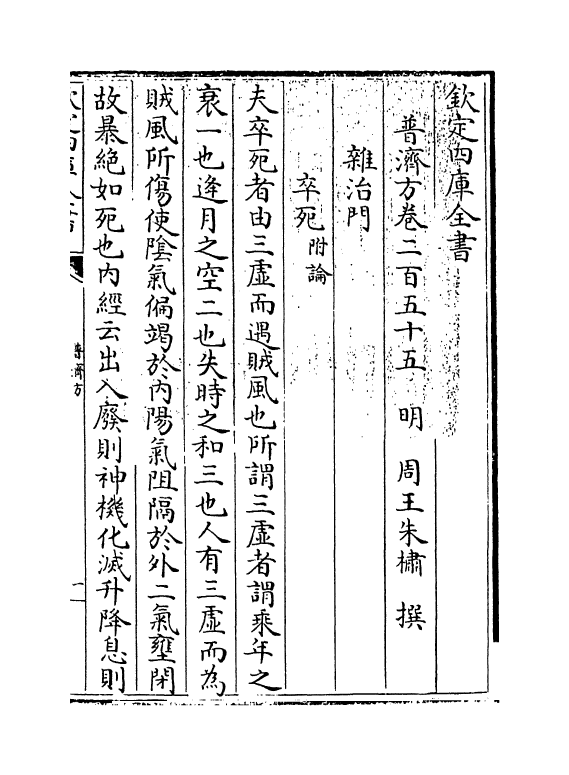 欽定四庫全書
普濟方卷二百五十五　明　周王朱橚　撰
雜治門
卒死附論
夫卒死者由三虛而遇賊風也所謂三虛者謂乘年之
衰一也逢月之空二也失時之和三也人有三虛而為
賊風所傷使陰氣偏竭於內陽氣阻隔於外二氣壅閉
故暴絶如死也內經云出入廢則神機化滅升降息則
普濟方
一